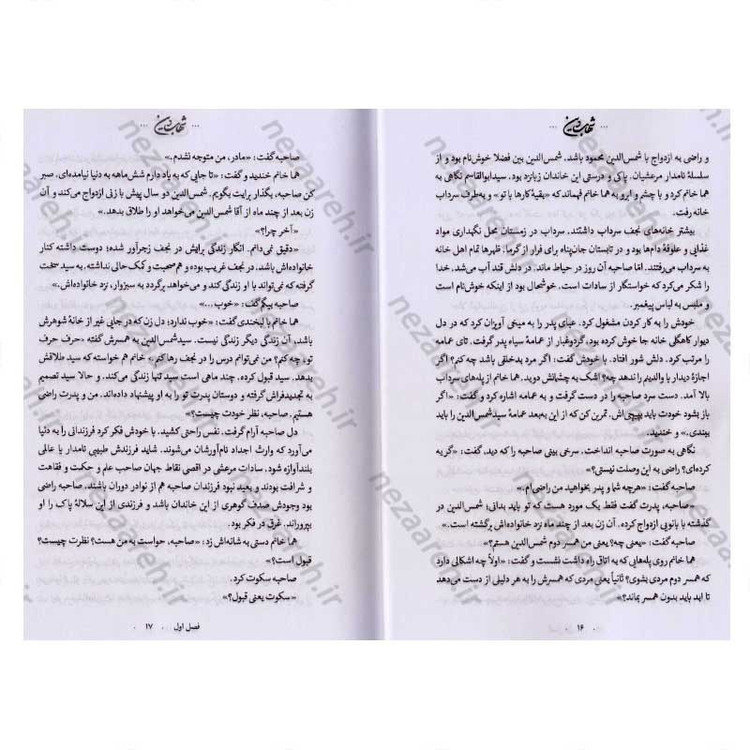 شهاب دین
و راضی به ازدواج با شمس‌الدین محمود باشد. شمس‌الدین بین فضلا خوش‌نام بود و از
سلسلهٔ نامدار مرعشیان. پاکی و درستی این خاندان زبانزد بود. سیدابوالقاسم نگاهی به
هما خانم کرد و با چشم و ابرو به هما خانم فهماند که «بقیهٔ کارها با تو» و به‌طرف سرداب
خانه رفت.
بیشتر خانه‌های نجف سرداب داشتند. سرداب در زمستان محل نگهداری مواد
غذایی و علوفهٔ دام‌ها بود و در تابستان جان‌پناه برای فرار از گرما. ظهرها تمام اهل خانه
به سرداب می‌رفتند. امّا صاحبه آن روز در حیاط ماند. در دلش قند آب می‌شد. خدا
را شکر می‌کرد که خواستگار از سادات است. خوشحال بود از اینکه خوش‌نام است
و ملبس به لباس پیغمبر.
خودش را به کار کردن مشغول کرد. عبای پدر را به میخی آویزان کرد که در دل
دیوار کاهگلی خانه جا خوش کرده بود. گردوغبار از عمامهٔ سیاه پدر گرفت. تای عمامه
را مرتب کرد. دلش شور افتاد. با خودش گفت: «اگر مرد بدخلقی باشد چه‌کنم؟ اگر
اجازهٔ دیدار با والدینم را ندهد چه؟ اشک به چشمانش دوید. هما خانم از پله‌های سرداب
بالا آمد. سبد صاحبه را در دست گرفت و به عمامه اشاره کرد و گفت: «اگر
باز بشود خودت باید بپیچی‌اش. تمرین کن که از این‌به‌بعد عمامهٔ سیدشمس‌الدین را باید
ببندی.» و خندید.
نگاهی به صورت صاحبه انداخت. سرخی بینی صاحبه را که دید، گفت: «گریه
کرده‌ای؟ راضی به این وصلت نیستی؟»
صاحبه گفت: «هرچه شما و پدر بخواهید من راضی‌ام.»
«صاحبه، پدرت گفت فقط یک مورد هست که تو باید بدانی؛ شمس‌الدین در
گذشته با بانویی ازدواج کرده. آن زن بعد از چند ماه نزد خانواده‌اش برگشته است.»
صاحبه گفت: «یعنی چه؟ یعنی من همسر دوم شمس‌الدین هستم؟»
هما خانم روی پله‌هایی که به اتاق راه داشت نشست و گفت: «اولاً چه اشکالی دارد
که همسر دوم مردی بشوی؟ ثانیاً یعنی مردی که همسرش را به هر دلیلی از دست می‌دهد
تا ابد باید بدون همسر بماند؟»
۱۶
شهاب دین
صاحبه گفت: «مادر، من متوجه نشدم.»
هما خانم خندید و گفت: «تا جایی که به یاد دارم شش‌ماهه به دنیا نیامده‌ای. صبر
کن صاحبه، بگذار برایت بگویم. شمس‌الدین دو سال پیش با زنی ازدواج می‌کند و آن
زن بعد از چند ماه از آقا شمس‌الدین می‌خواهد او را طلاق بدهد.»
«آخر چرا؟»
«دقیق نمی‌دانم. انگار زندگی برایش در نجف زجرآور شده؛ دوست داشته کنار
خانواده‌اش باشد. در نجف غریب بوده و هم‌صحبت و کمک حالی نداشته. به سید سخت
گرفته که نمی‌تواند با او زندگی کند و می‌خواهد برگردد به سبزوار، نزد خانواده‌اش.»
صاحبه بیگم گفت: «خوب...»
هما خانم با لبخندی گفت: «خوب ندارد؛ دل زن که در جایی غیر از خانهٔ شوهرش
باشد، آن زندگی دیگر زندگی نیست. سیدشمس‌الدین به همسرش گفته «حرف حرف
تو، چه کنم؟ من نمی‌توانم درس را در نجف رها کنم.» خانم هم خواسته که سید طلاقش
بدهد. سید قبول کرده. چند ماهی است سید تنها زندگی می‌کند. و حالا سید تصمیم
به تجدیدفراش گرفته و دوستان پدرت تو را به او پیشنهاد داده‌اند. من و پدرت راضی
هستیم. صاحبه، نظر خودت چیست؟»
دل صاحبه آرام گرفت. نفس راحتی کشید. با خودش فکر کرد فرزندانی را به دنیا
می‌آورد که وارث اجداد نام‌آورشان می‌شوند. شاید فرزندش طبیبی نامدار یا عالمی
بلندآوازه شود. سادات مرعشی در اقصی نقاط جهان صاحب علم و حکمت و فقاهت
و شرافت بودند و بعید نبود فرزندان صاحبه هم از نوادر دوران باشند. صاحبه راضی
بود وجودش صدف گوهری از این خاندان باشد و فرزندی از این سلالهٔ پاک را او
بپروراند. غرق در فکر بود.
هما خانم دستی به شانه‌اش زد: «صاحبه، حواست به من هست؟ نظرت چیست؟
قبول است؟»
صاحبه سکوت کرد.
«سکوت یعنی قبول؟»
فصل اول ۱۷
nezaareh.ir